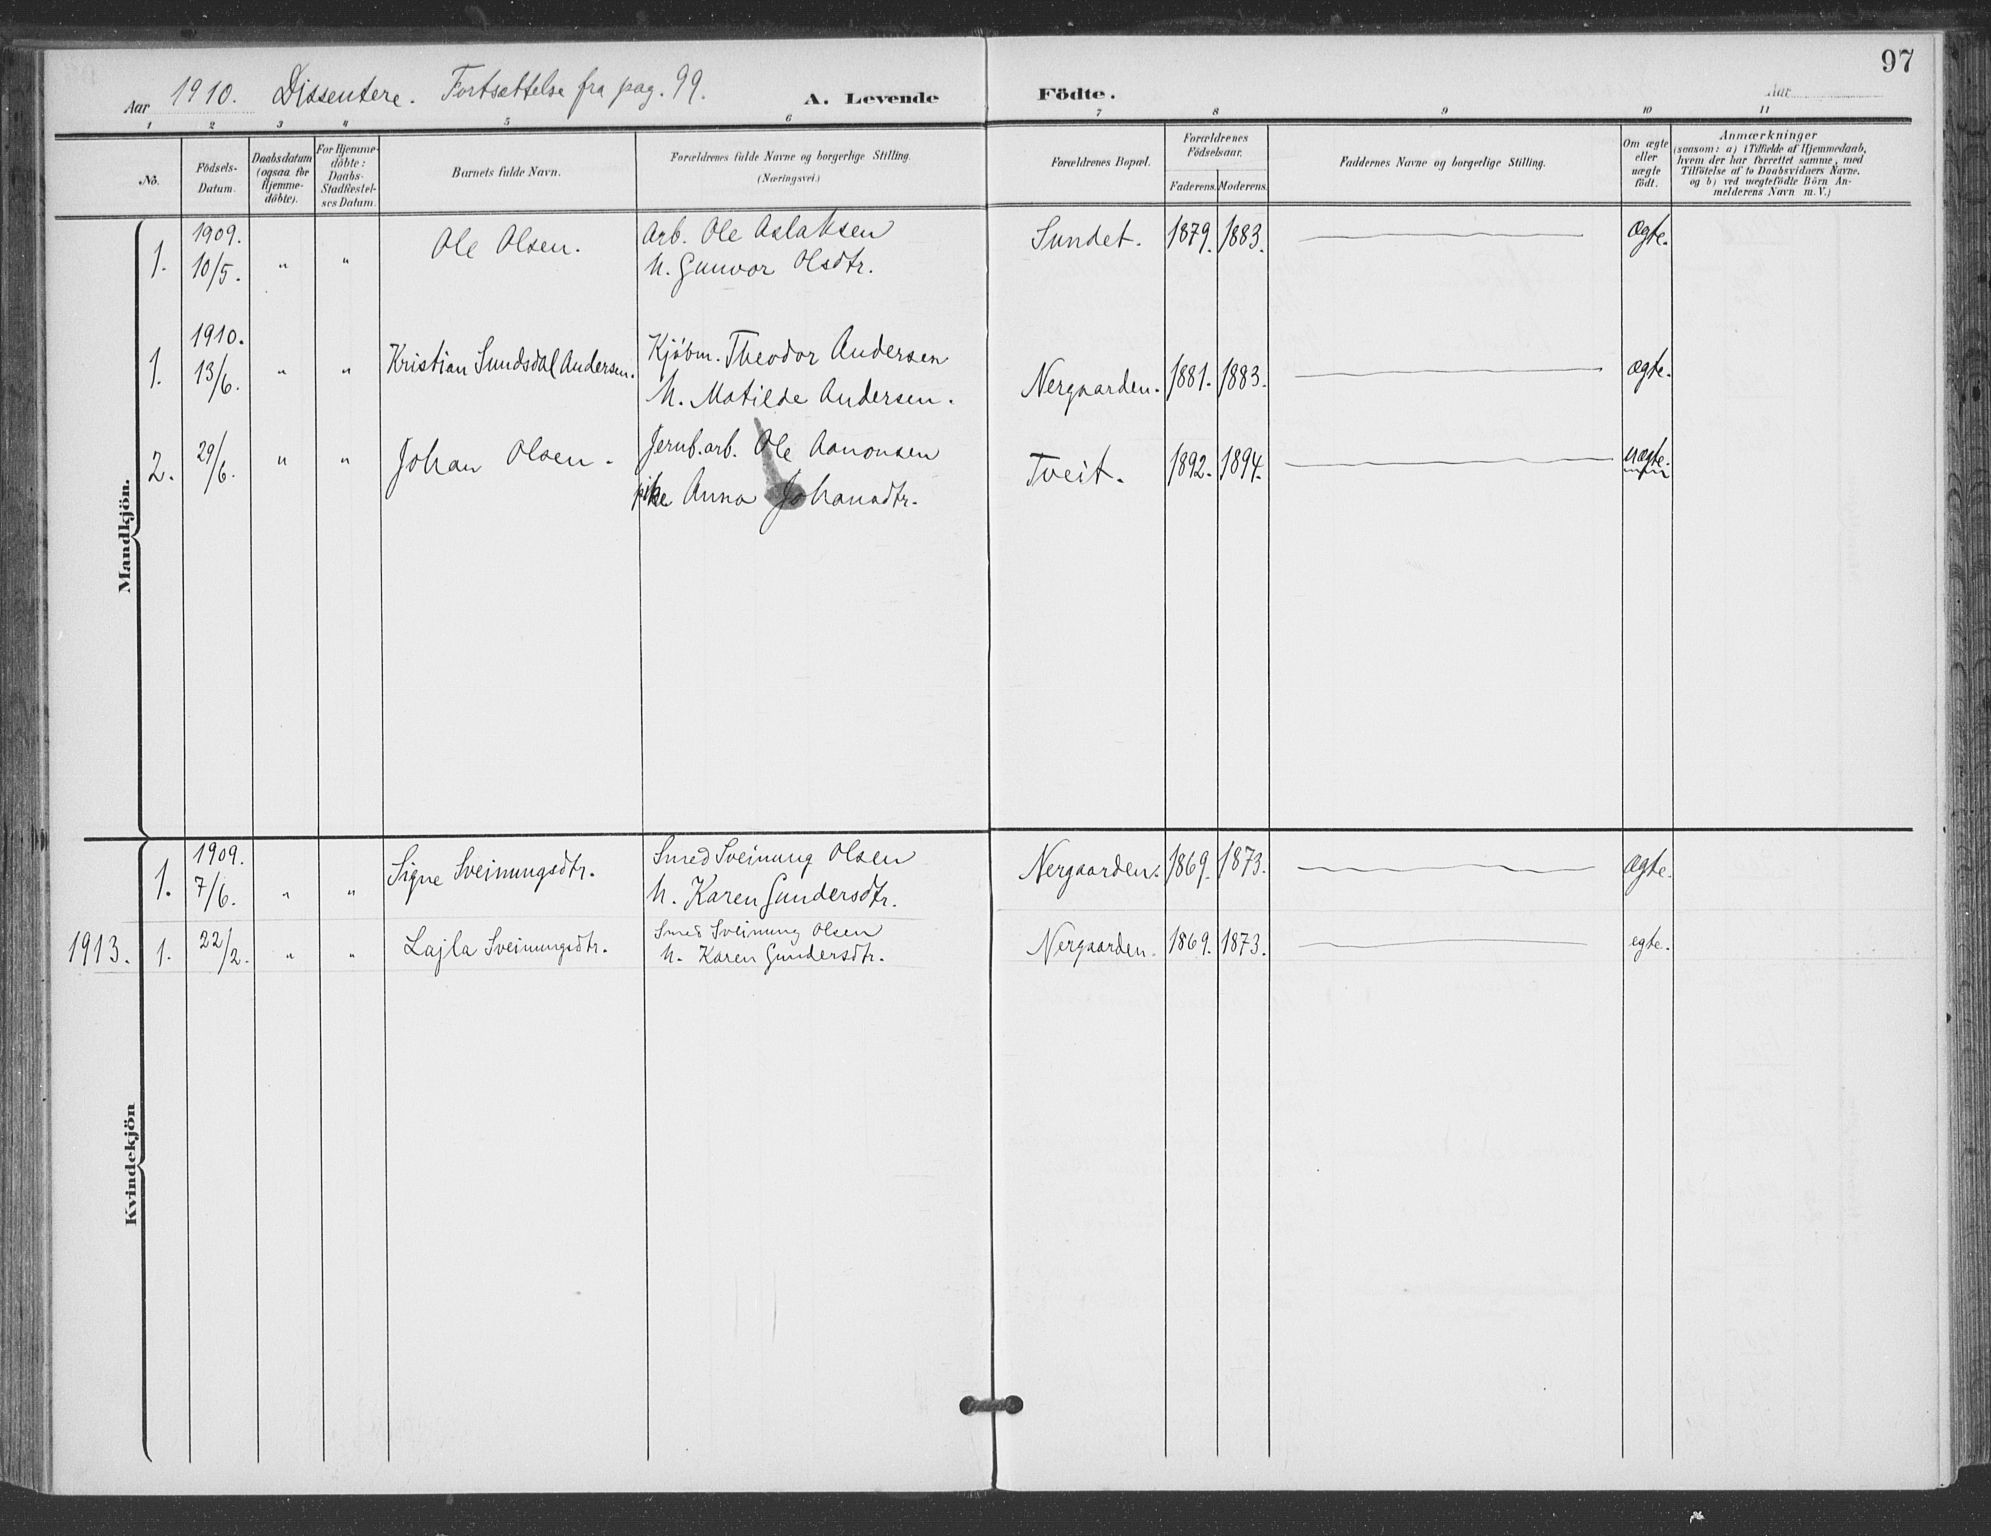 97
Aar 1910. Dissentere. Fortsættelse fra pag. 99. A. Levende Födte. Aar
1 2 3 4 5 6 7 8 9 10 11
No.
Födsels-
Datum.
Daabsdatum
(ogsaa for
Hjemme-
döbte).
For Hjemme-
döbte:
Daabs-
Stadfæstel-
ses Datum.
Barnets fulde Navn.
Forældrenes fulde Navne og borgerlige Stilling.
(Næringsvei.)
Forældrenes Bopæl.
Forældrenes
Födselsaar.
Faderens. Moderens.
Faddernes Navne og borgerlige Stilling.
Om ægte
eller
uægte
födt.
Anmærkninger
(saasom: a) i Tilfælde af Hjemmedaab,
hvem der har forrettet samme, med
Tilföielse af to Daabsvidners Navne,
og b) ved uægtefödte Börn An-
melderens Navn m. V.)
Mandkjön.
1. 1909. 10/5. " " Ole Olsen. Arb. Ole Aslaksen
H. Gunvor Olsdtr. Sundet. 1879. 1883. ægte.
1. 1910. 13/6. " " Kristian Sundsdal Andersen. Kjöbm. Theodor Andersen
H. Matilde Andersen. Nergaarden. 1881. 1883. ægte.
2. 29/6. " " Johan Olsen. Jernb.arb. Ole Aanonsen
pike Anna Johansdtr. Tveit. 1892. 1894. uægte.
Kvindekjön
1. 1909. 7/6. " " Signe Sveinungsdtr. Smed Sveinung Olsen
H. Karen Gundersdtr. Nergaarden. 1869. 1873. ægte.
1913. 1. 22/2. " " Lajla Sveinungsdtr. Smed Sveinung Olsen
H. Karen Gundersdtr. Nergaarden. 1869. 1873. egte.